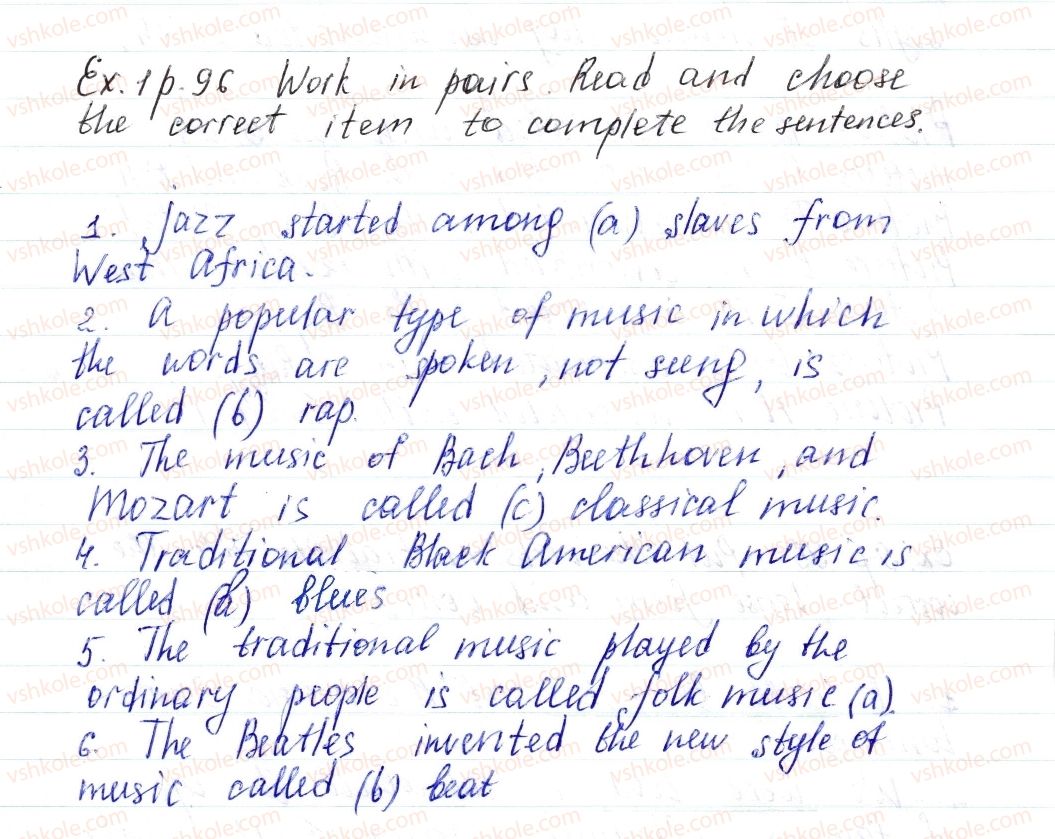 Ex. 1 p. 96 Work in pairs. Read and choose
the correct item to complete the sentences.
1. Jazz started among (a) slaves from
West Africa.
2. A popular type of music in which
the words are spoken, not sung, is
called (b) rap.
3. The music of Bach, Beethhoven, and
Mozart is called (c) classical music.
4. Traditional Black American music is
called blues
5. The traditional music played by the
ordinary people is called folk music (a).
6. The Beatles invented the new style of
music called (b) beat